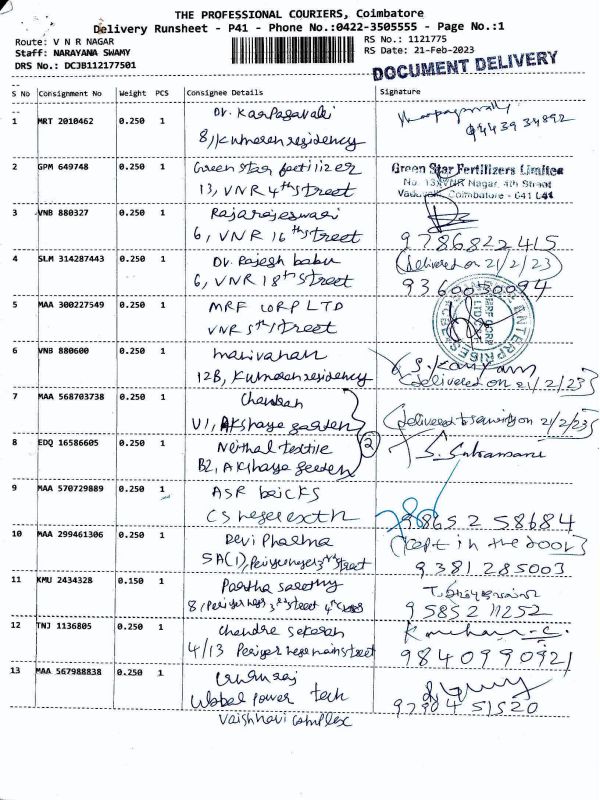 THE PROFESSIONAL COURIERS, Coimbatore
Delivery Runsheet - P41 - Phone No.:0422-3505555 - Page No.:1
Route: V N R NAGAR
RS No.: 1121775
Staff: NARAYANA SWAMY
RS Date: 21-Feb-2023
DRS No.: DCJB112177501
DOCUMENT DELIVERY
S No Consignment No Weight PCS Consignee Details Signature
1 MRT 2010462 0.250 1 Dr. Karpagavalli
8, Kumaran residency
9443934892
2 GPM 649748 0.250 1 Green star fertilizer
13, VNR 4th Street
Green Star Fertilizers Limited
No. 13, VNR Nagar, 4th Street
Coimbatore - 641 041
3 VNB 880327 0.250 1 Rajarajeswari
6, VNR 16th Street
9786822415
4 SLM 314287443 0.250 1 Dr. Rajesh babu
6, VNR 18th Street
(delivered on 21/2/23)
9360030094
5 MAA 300227549 0.250 1 MRF CORP LTD
VNR 5th Street
6 VNB 880600 0.250 1 Manivahan
12B, Kumaran residency
(delivered on 21/2/23)
7 MAA 568703738 0.250 1 Chandran
V1, Akshaya garden
(delivered to security on 21/2/23)
8 EDQ 16586605 0.250 1 Neithal textile
B2, Akshaya garden
2
9 MAA 570729889 0.250 1 ASR bricks
CS nagar extn
98652 58684
10 MAA 299461306 0.250 1 Devi Pharma
5A(1), Periyar nagar 3rd street
(kept in the door)
9381285003
11 KMU 2434328 0.150 1 Partha sarathy
8, Periyar nagar 3rd street
95852 11252
12 TNJ 1136805 0.250 1 Chandra sekaran
4/13 Periyar nagar main street
9840990921
13 MAA 567988838 0.250 1
Global power tech
Vaishnavi complex
97904 51520